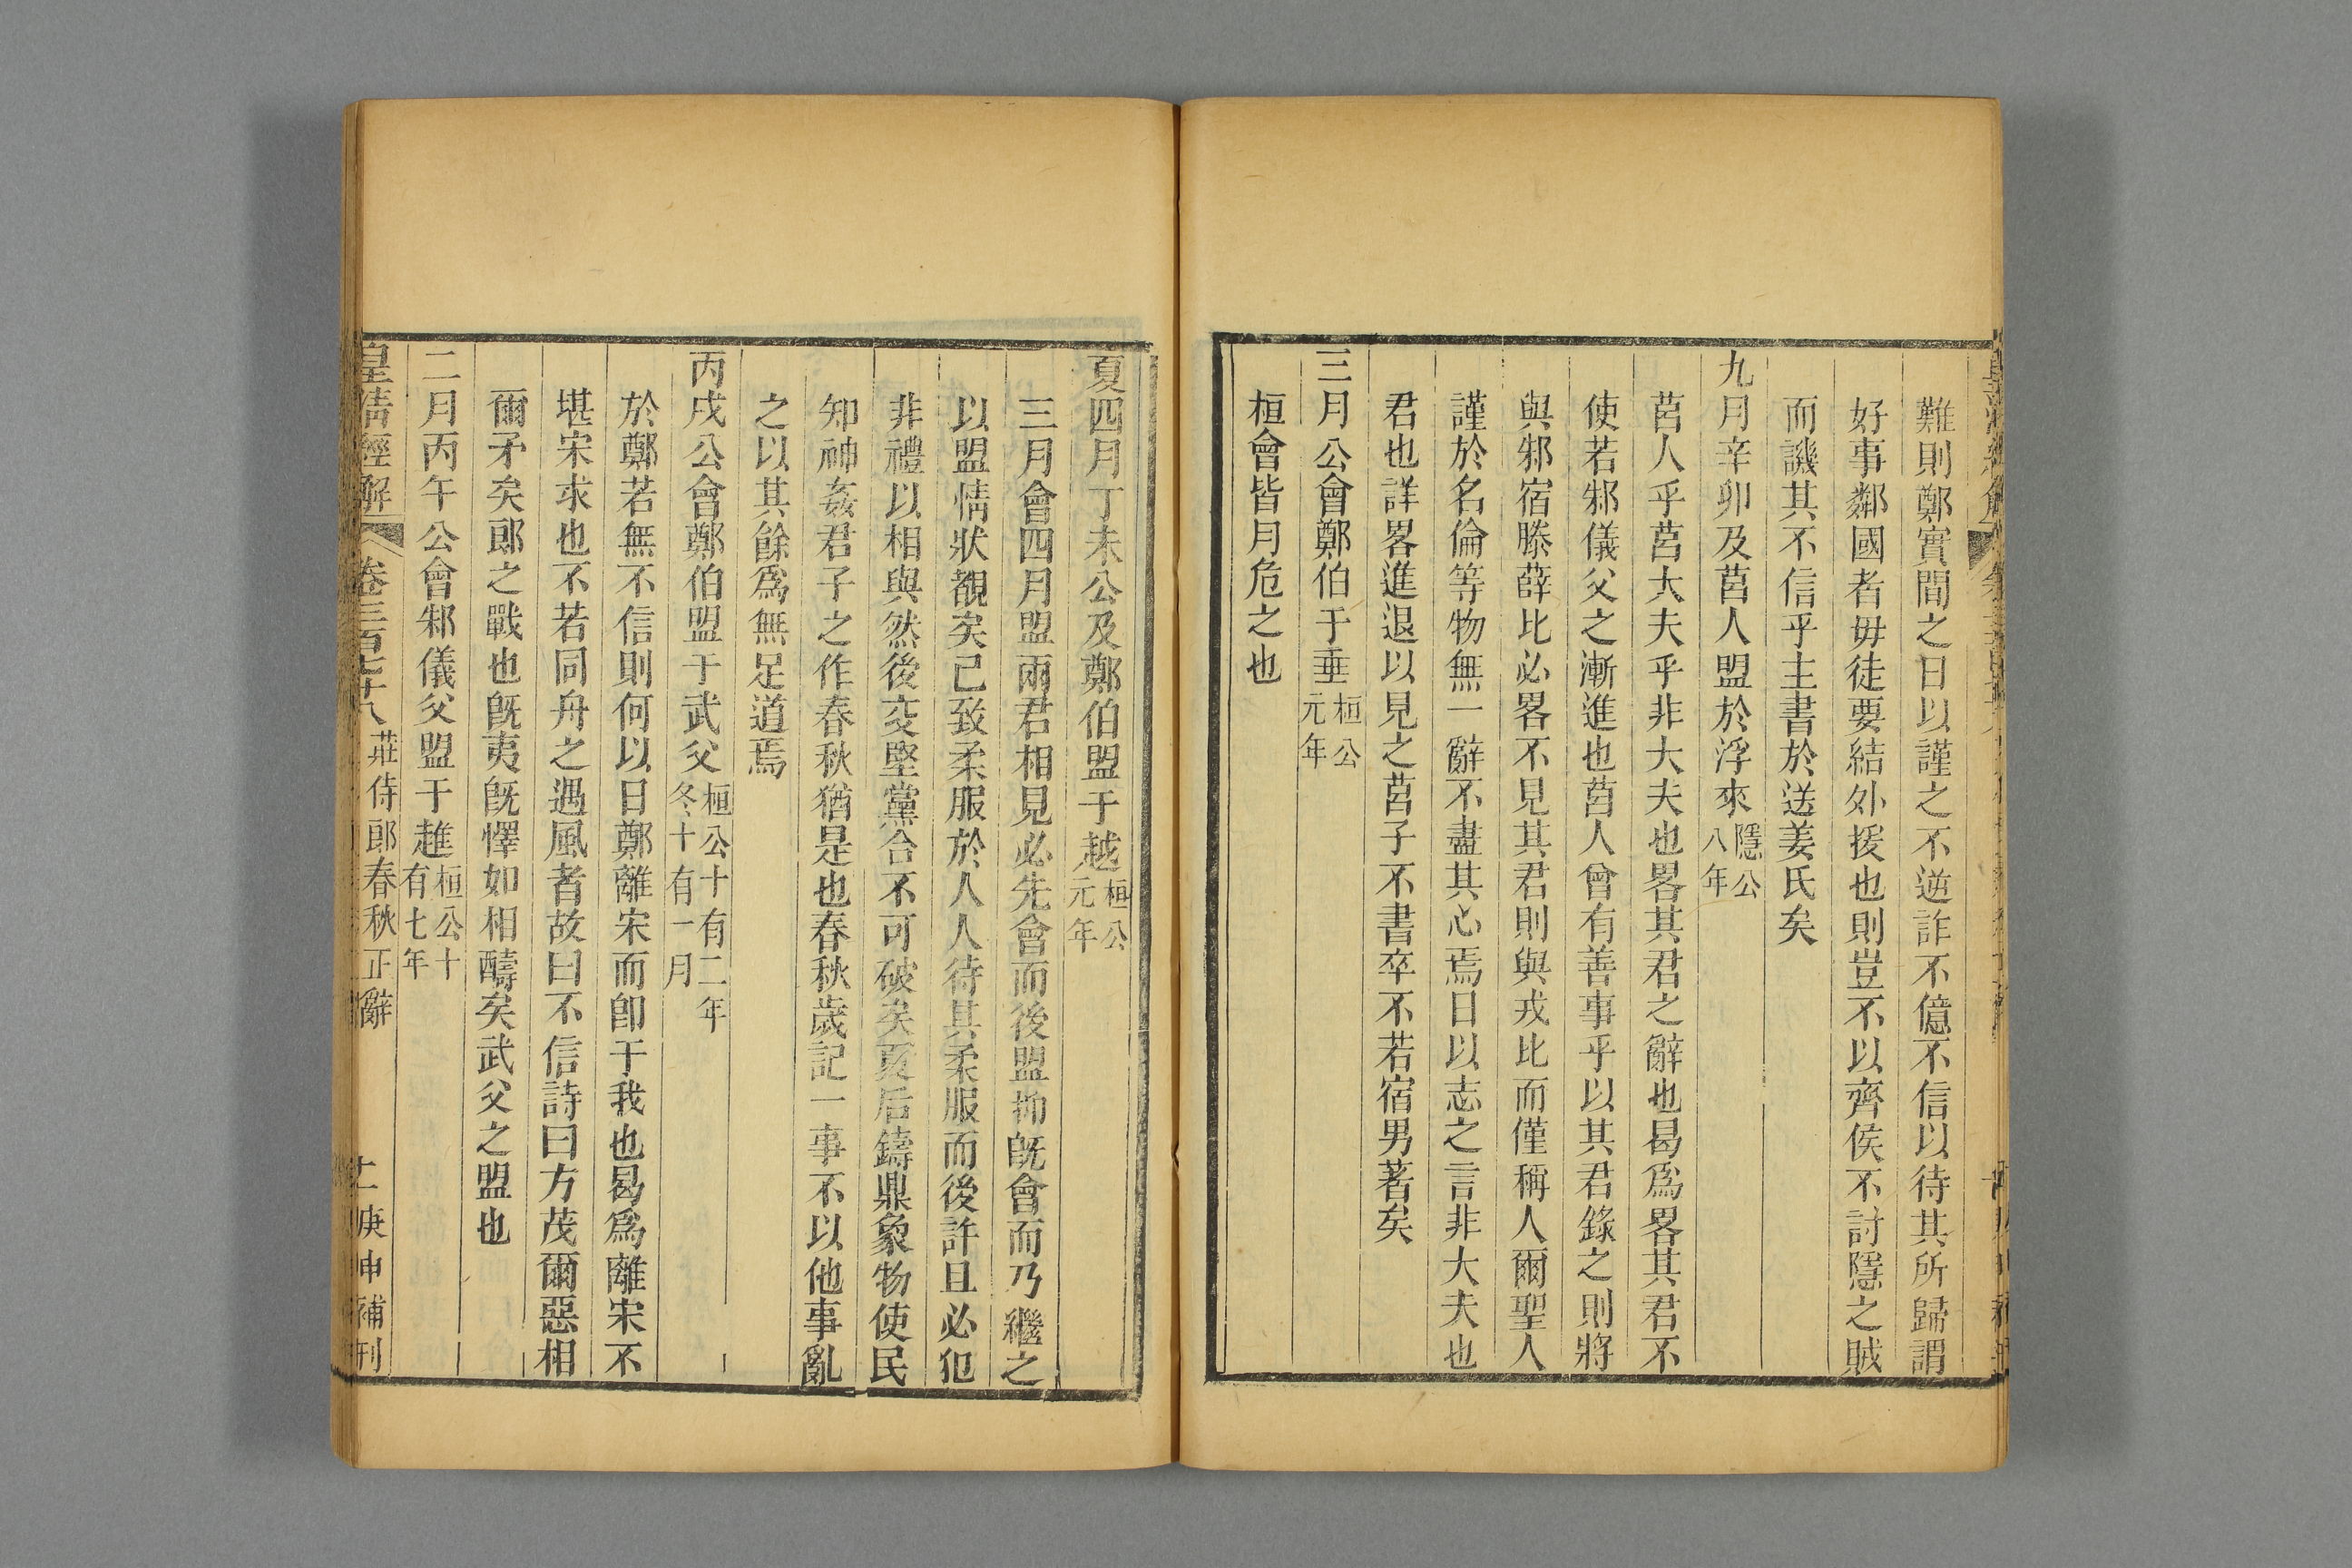 難則鄭實間之日以謹之不逆詐不億不信以待其所歸謂
好事鄰國者毋徒要結外援也則豈不以齊侯不討隱之賊
而譏其不信乎主書於送姜氏矣
九月辛卯及莒人盟於浮來隱公八年
莒人乎莒大夫乎非大夫也畧其君之辭也曷爲畧其君不
使若邾儀父之漸進也莒人曾有善事乎以其君錄之則將
與邾宿滕薛比必畧不見其君則與戎比而僅稱人爾聖人
謹於名倫等物無一辭不盡其心焉日以志之言非大夫也
君也詳畧進退以見之莒子不書卒不若宿男著矣
三月公會鄭伯于垂桓公元年
桓會皆月危之也
夏四月丁未公及鄭伯盟于越桓公元年
三月會四月盟兩君相見必先會而後盟抑旣會而乃繼之
以盟情狀覩矣己致柔服於人人待其柔服而後許且必犯
非禮以相與然後交堅黨合不可破矣夏后鑄鼎象物使民
知神姦君子之作春秋猶是也春秋歲記一事不以他事亂
之以其餘爲無足道焉
丙戌公會鄭伯盟于武父桓公十有二年冬十有一月
於鄭若無不信則何以日鄭離宋而卽于我也曷爲離宋不
堪宋求也不若同舟之遇風者故曰不信詩曰方茂爾惡相
爾矛矣郎之戰也旣夷旣懌如相醻矣武父之盟也
二月丙午公會邾儀父盟于趡桓公十有七年
皇淸經解 卷三百七十八 莊侍郎春秋正辭 十二 庚申補刊